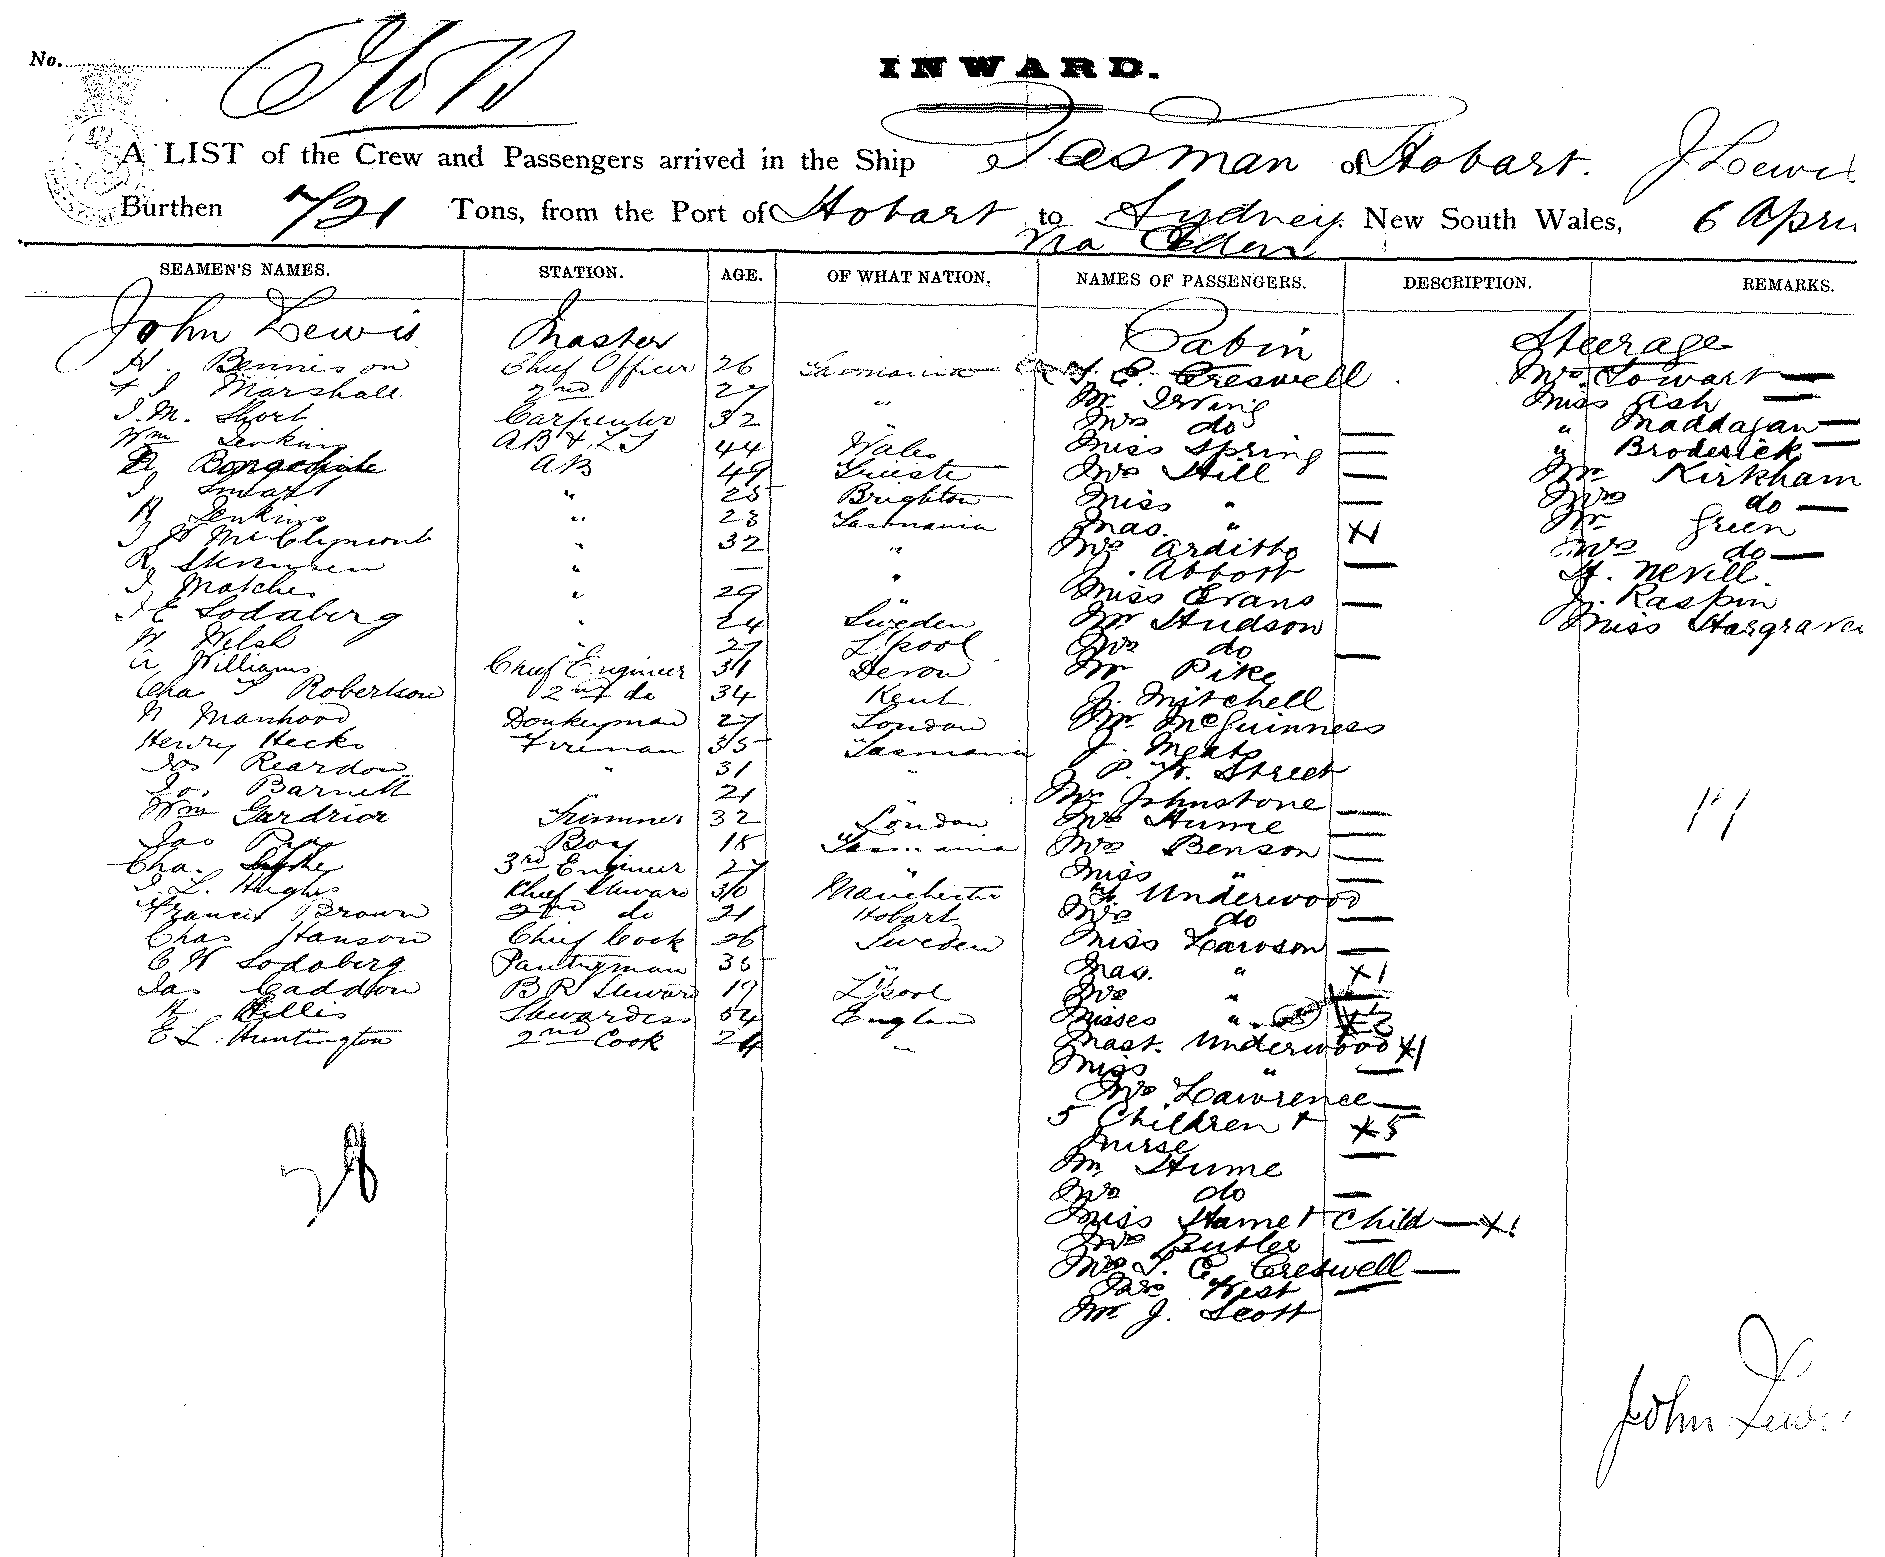 No.
INWARD.
A LIST of the Crew and Passengers arrived in the Ship Tasman of Hobart. J Lewis
Burthen Tons, from the Port of Hobart to Sydney. New South Wales, 6 Apri
Via Eden
SEAMEN'S NAMES. STATION. AGE. OF WHAT NATION. NAMES OF PASSENGERS. DESCRIPTION. REMARKS.
John Lewis Master Cabin Steerage
H. Bennison Chief Officer 26 Tasmania C. Creswell Mrs. Towart —
Marshall 2nd 27 " Mr Irving Miss Ash —
J. M. Short Carpenter 32 " Mrs do — " Maddagan —
Wm Jenkins AB & LT 44 Wales Miss Spring — " Broderick —
AB 49 Trieste Mrs Hill — Mr Kirkham
Smart " 25 Brighton Miss " — Mrs do —
Jenkins " 23 Tasmania Mas. " X1 Mr Green
McClymont " 32 " Mrs Arditto — Mrs do —
" — " J. Abbott H. Nevill.
J Matches " 29 " Miss Evans — J. Raspin
J E Sodaberg " 24 Sweden Mr Hudson Miss Hargrave
Welsh " 27 L'pool Mrs do —
Williams Chief Engineer 31 Devon Mr Pike
Cha S Robertson 2nd do 34 Kent J. Mitchell
Manhood Donkeyman 27 London Mr. McGuinness
Henry Hecks Fireman 35 Tasmania J. Meats
Jas Reardon " 31 " P. W. Street
Jo. Barnett " 21 " Mr Johnstone —
Wm Gardrior Trimmer 32 London Mrs Hume —
Jas Boy 18 Tasmania Mrs Benson —
Cha. 3rd Engineer 27 " Miss " —
J. L. Hughes Chief Steward 30 Manchester Underwood
Francis Brown 2nd do 21 Hobart Mrs do —
Chas Hanson Chief Cook 26 Sweden Miss Lawson —
C W Sodaberg Pantryman 35 " Mas. " X1
Jas Caddon B R Steward 19 L'pool Mrs " —
Hellis Stewardess 54 England Misses "
E L. Huntington 2nd Cook 24 " Mast. Underwood X1
Miss " —
Mrs Lawrence —
5 Children + X5
Nurse —
28
Mr Hume
Mrs do —
Miss Hame + Child — X1
Mrs Butler —
Mrs T. C. Creswell —
Mrs West —
Mr J. Scott
John Lewi